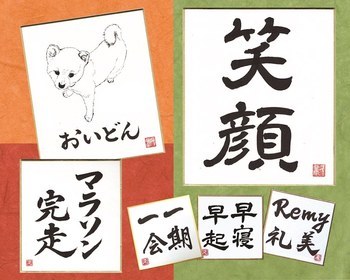 おいどん
笑顔
マラソン
完走
一期
一会
早寝
早起
Remy
礼美